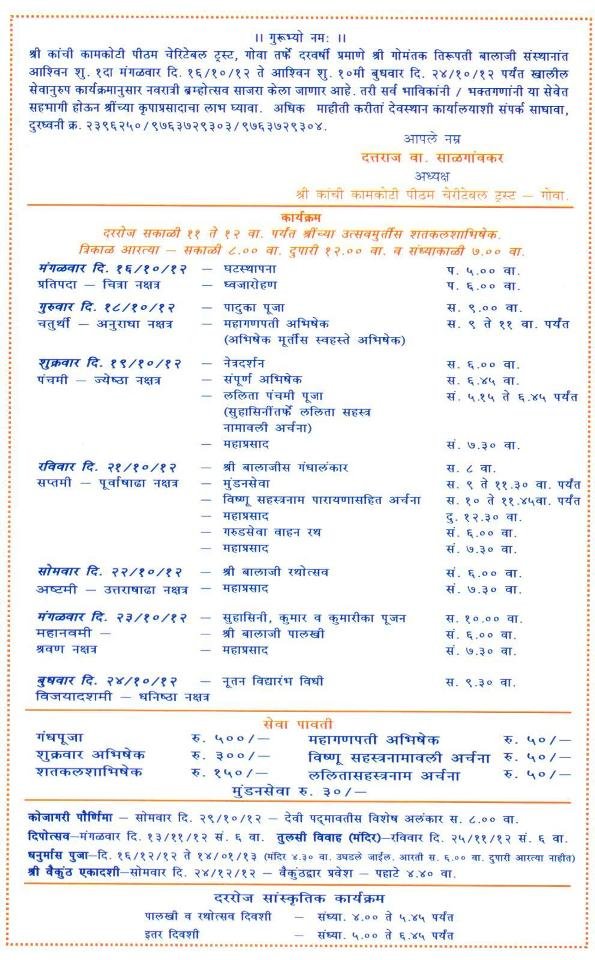 ।। गुरूभ्यो नमः ।।
श्री कांची कामकोटी पीठम चेरिटेबल ट्रस्ट, गोवा तर्फे दरवर्षी प्रमाणे श्री गोमंतक तिरूपती बालाजी संस्थानांत
आश्विन शु. १दा मंगळवार दि. १६/१०/१२ ते आश्विन शु. १०मी बुधवार दि. २४/१०/१२ पर्यंत खालील
सेवानुरुप कार्यक्रमानुसार नवरात्री ब्रम्होत्सव साजरा केला जाणार आहे. तरी सर्व भाविकांनी / भक्तगणांनी या सेवेत
सहभागी होऊन श्रींच्या कृपाप्रसादाचा लाभ घ्यावा. अधिक माहीती करीतां देवस्थान कार्यालयाशी संपर्क साधावा,
दुरध्वनी क्र. २३९६२५०/९७६३७२९३०३/९७६३७२९३०४.
आपले नम्र
दत्तराज वा. साळगांवकर
अध्यक्ष
श्री कांची कामकोटी पीठम चेरीटेबल ट्रस्ट – गोवा.
कार्यक्रम
दररोज सकाळी ११ ते १२ वा. पर्यंत श्रींच्या उत्सवमुर्तीस शतकलशाभिषेक.
त्रिकाळ आरत्या – सकाळी ८.०० वा. दुपारी १२.०० वा. व संध्याकाळी ७.०० वा.
मंगळवार दि. १६/१०/१२ – घटस्थापना प. ५.०० वा.
प्रतिपदा – चित्रा नक्षत्र – ध्वजारोहण प. ६.०० वा.
गुरुवार दि. १८/१०/१२ – पादुका पूजा स. ९.०० वा.
चतुर्थी – अनुराधा नक्षत्र – महागणपती अभिषेक स. ९ ते ११ वा. पर्यंत
(अभिषेक मूर्तीस स्वहस्ते अभिषेक)
शुक्रवार दि. १९/१०/१२ – नेत्रदर्शन स. ६.०० वा.
पंचमी – ज्येष्ठा नक्षत्र – संपूर्ण अभिषेक स. ६.४५ वा.
– ललिता पंचमी पूजा सं. ५.१५ ते ६.४५ पर्यंत
(सुहासिनींतर्फे ललिता सहस्त्र
नामावली अर्चना)
– महाप्रसाद सं. ७.३० वा.
रविवार दि. २१/१०/१२ – श्री बालाजीस गंधालंकार स. ८ वा.
सप्तमी – पूर्वाषाढा नक्षत्र – मुंडनसेवा स. ९ ते ११.३० वा. पर्यंत
– विष्णू सहस्त्रनाम पारायणासहित अर्चना स. १० ते ११.४५वा. पर्यंत
– महाप्रसाद दु. १२.३० वा.
– गरुडसेवा वाहन रथ सं. ६.०० वा.
– महाप्रसाद सं. ७.३० वा.
सोमवार दि. २२/१०/१२ – श्री बालाजी रथोत्सव सं. ६.०० वा.
अष्टमी – उत्तराषाढा नक्षत्र – महाप्रसाद सं. ७.३० वा.
मंगळवार दि. २३/१०/१२ – सुहासिनी, कुमार व कुमारीका पूजन स. १०.०० वा.
महानवमी – – श्री बालाजी पालखी सं. ६.०० वा.
श्रवण नक्षत्र – महाप्रसाद सं. ७.३० वा.
बुधवार दि. २४/१०/१२ – नूतन विद्यारंभ विधी स. ९.३० वा.
विजयादशमी – धनिष्ठा नक्षत्र
सेवा पावती
गंधपूजा रु. ५००/– महागणपती अभिषेक रु. ५०/–
शुक्रवार अभिषेक रु. ३००/– विष्णू सहस्त्रनामावली अर्चना रु. ५०/–
शतकलशाभिषेक रु. १५०/– ललितासहस्त्रनाम अर्चना रु. ५०/–
मुंडनसेवा रु. ३०/–
कोजागरी पौर्णिमा – सोमवार दि. २९/१०/१२ – देवी पद्मावतीस विशेष अलंकार स. ८.०० वा.
दिपोत्सव–मंगळवार दि. १३/११/१२ सं. ६ वा. तुलसी विवाह (मंदिर)–रविवार दि. २५/११/१२ सं. ६ वा.
धनुर्मास पुजा–दि. १६/१२/१२ ते १४/०१/१३ (मंदिर ४.३० वा. उघडले जाईल. आरती स. ६.०० वा. दुपारी आरत्या नाहीत)
श्री वैकुंठ एकादशी–सोमवार दि. २४/१२/१२ – वैकुंठद्वार प्रवेश – पहाटे ४.४० वा.
दररोज सांस्कृतिक कार्यक्रम
पालखी व रथोत्सव दिवशी – संध्या. ४.०० ते ५.४५ पर्यंत
इतर दिवशी – संध्या. ५.०० ते ६.४५ पर्यंत